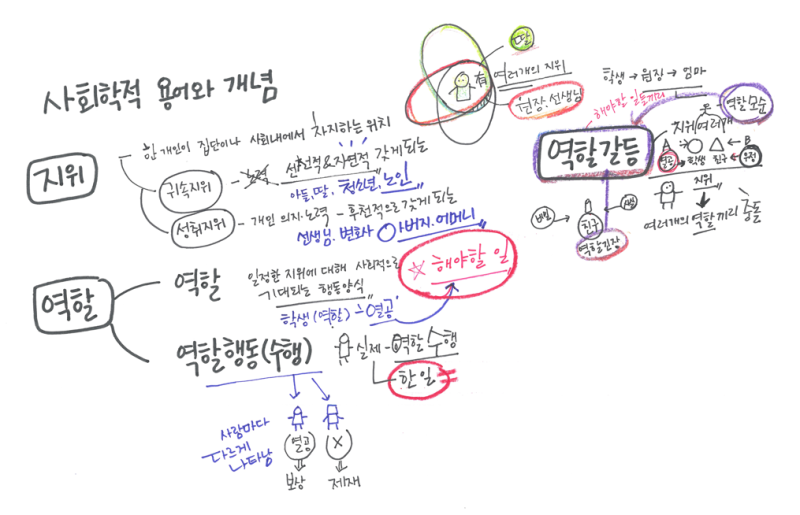 사회학적 용어와 개념
지위
한 개인이 집단이나 사회내에서 차지하는 위치
귀속지위 - 선천적&자연적 갖게되는
아들, 딸, 청소년, 노인
성취지위 - 개인 의지·노력 - 후천적으로 갖게 되는
선생님. 변호사 아버지. 어머니
역할
역할
일정한 지위에 대해 사회적으로
기대되는 행동양식
학생(역할) → 열공
☆ 해야할 일
역할행동(수행)
실제 - 역할 수행
한일
사람마다
다르게
나타남
열공
X
보상
제재
딸
有
여러개의 지위
원장. 선생님
학생 → 원장 → 엄마
역할모순
역할갈등
지위 여러개
A
B
열공
학생
친구
우정
지위
여러개의 역할끼리 충돌
친구
역할긴장